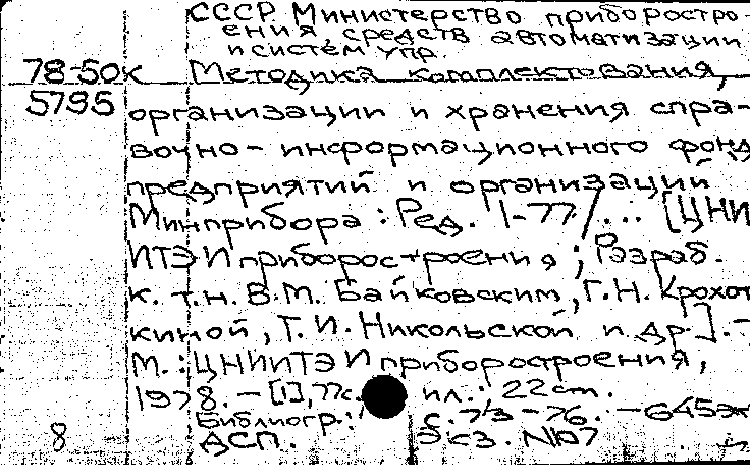 СССР. Министерство приборостро-
ения, средств автоматизации
и систем упр.
78-50к Методика комплектования,
5795 организации и хранения спра-
вочно-информационного фонд
предприятий и организаций
Минприбора: Ред. 1-77/... [ЦНИ
ИТЭИприборостроения; Разраб.
к. т.н. В.М. Байковским, Г.Н. Крохот
киной, Т.И. Никольской и др.]. -
М.: ЦНИИТЭИприборостроения,
1978. - [1], 77с. ил.; 22 см.
Библиогр.: с. 73-76. - 645э
8 ДСП. Экз. №107